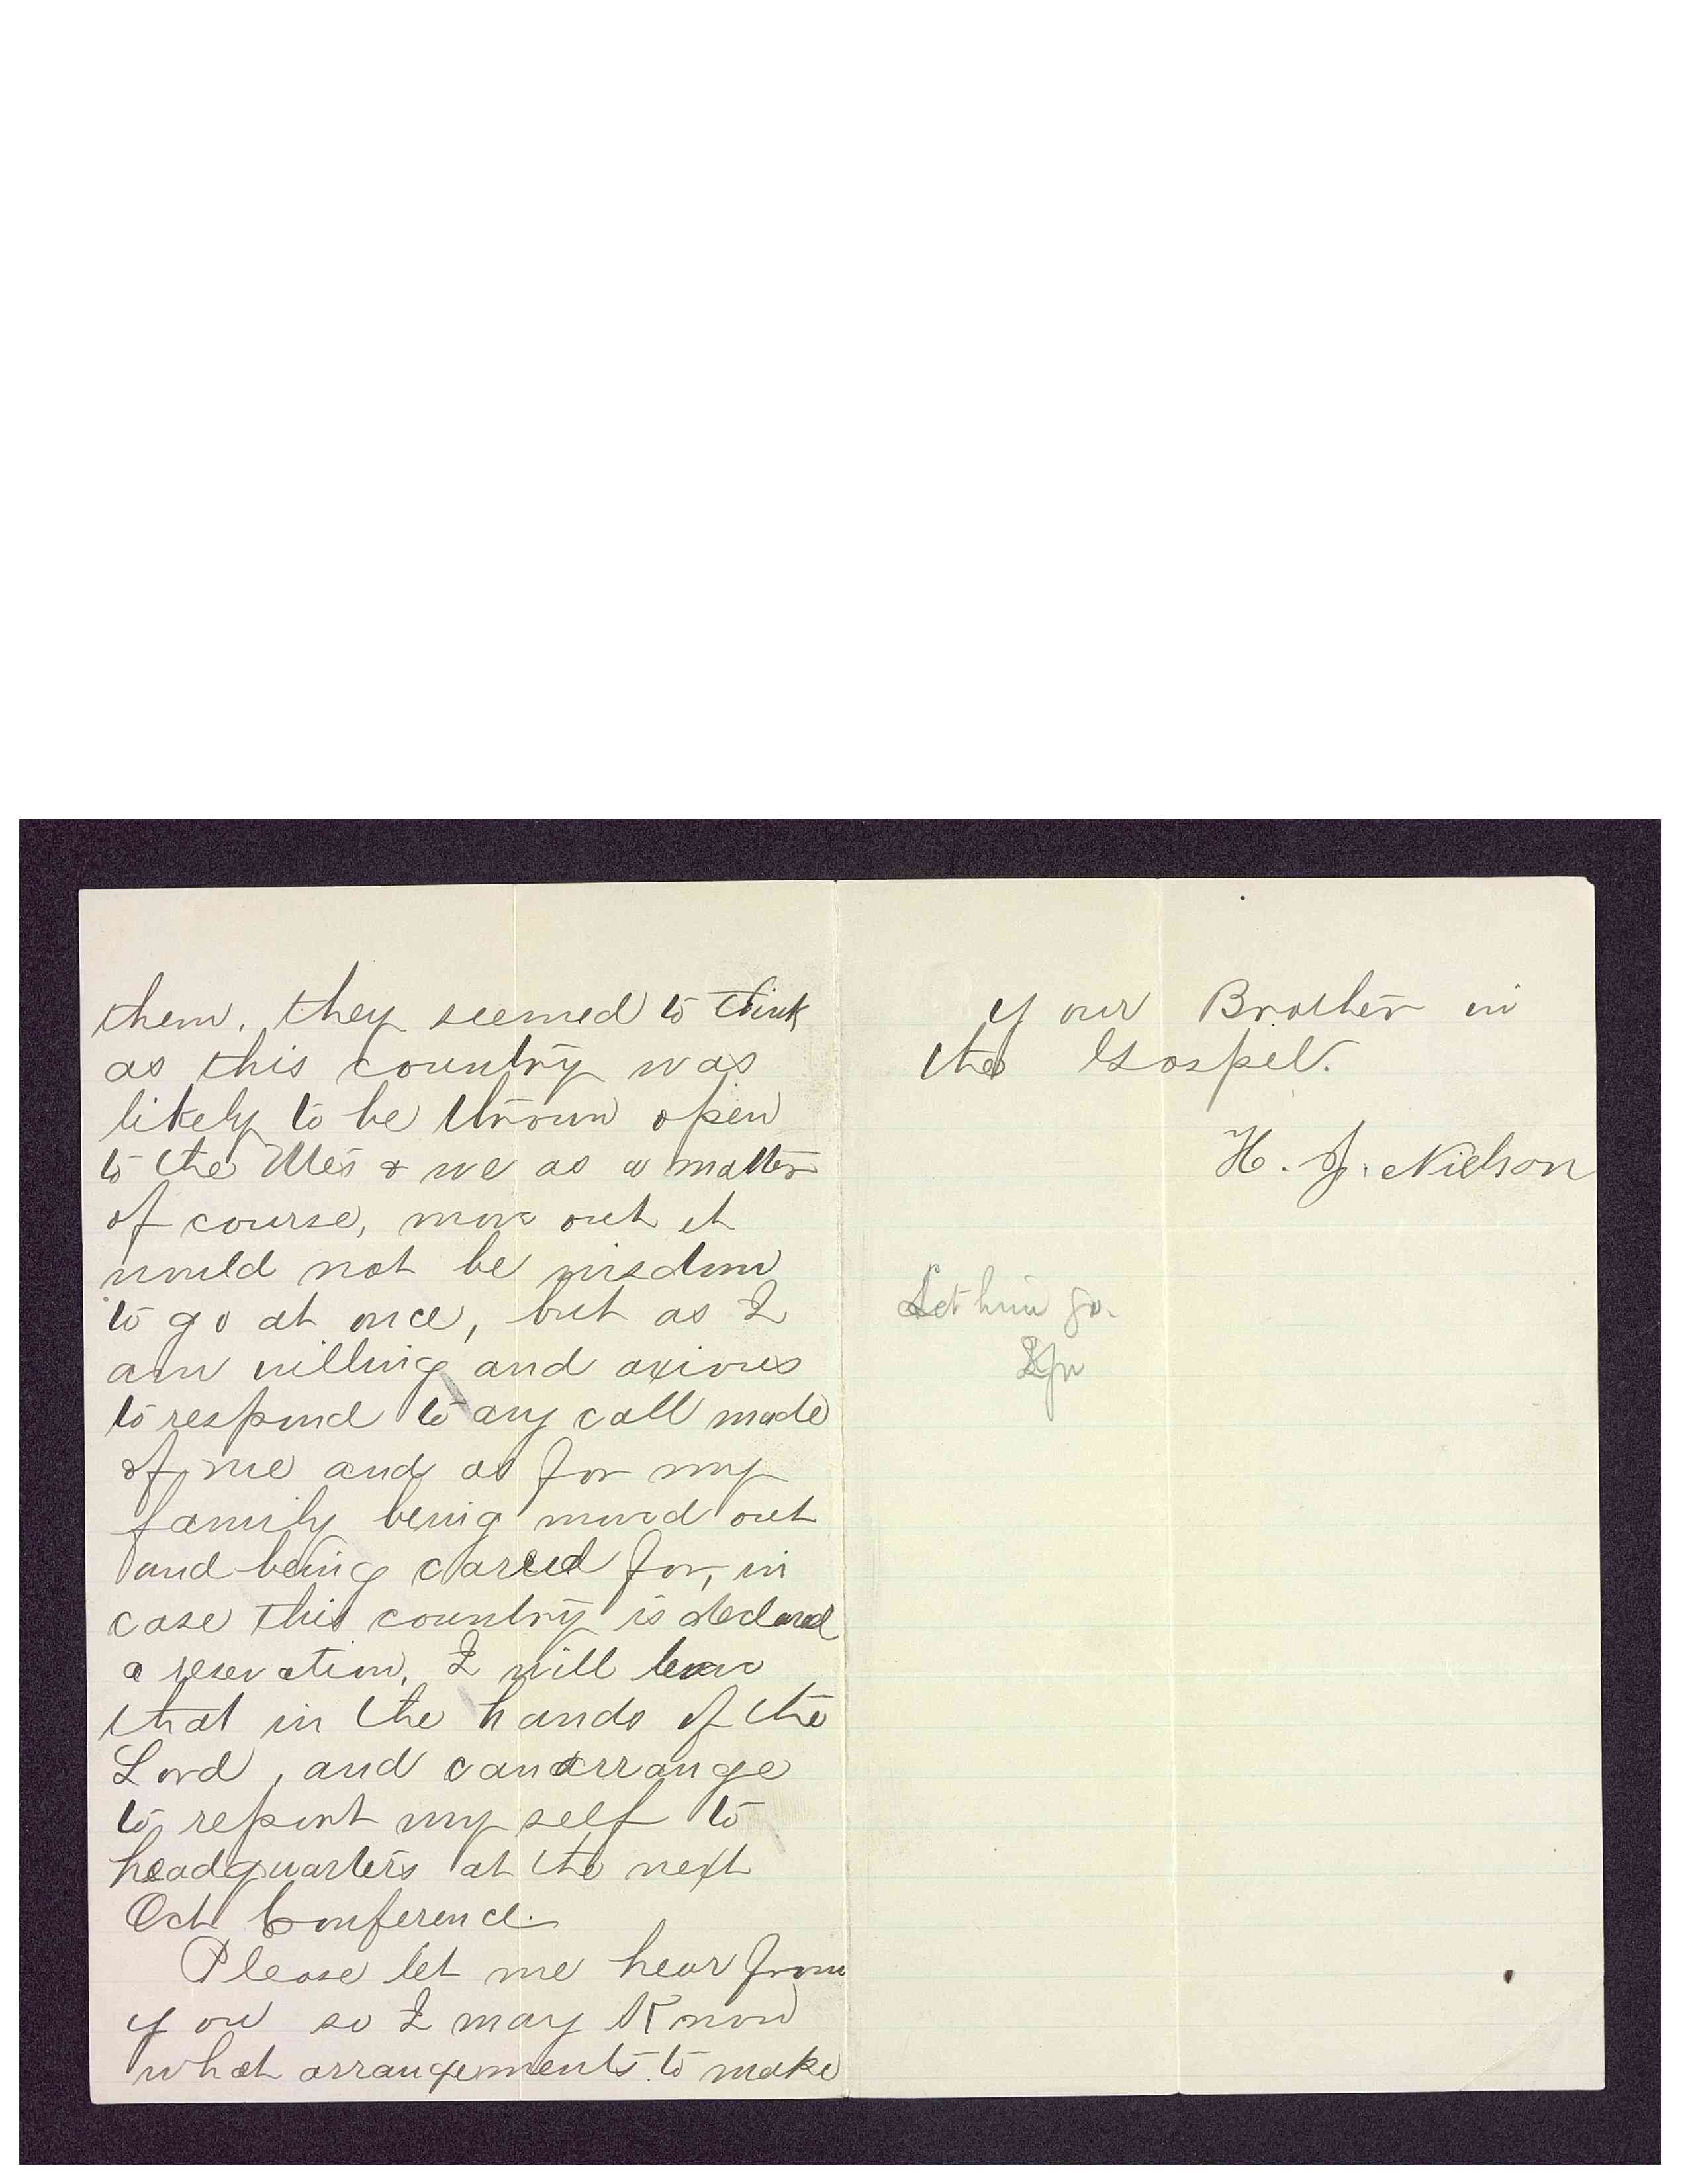 them. they seemed to think
as this country was
likely to be thrown open
to the Utes & we as a matter
of course, move out it
would not be wisdom
to go at once, but as I
am willing and axious
to respond to any call made
of me and as for my
family being moved out
and being carred for, in
case this country is declared
a reservation, I will leave
that in the hands of the
Lord, and can arrange
to report my self to
headquarters at the next
Oct Conference.
Please let me hear from
you so I may Know
what arrangements to make
your Brother in
the Gospel.
H. J. Nielson
Let him go.